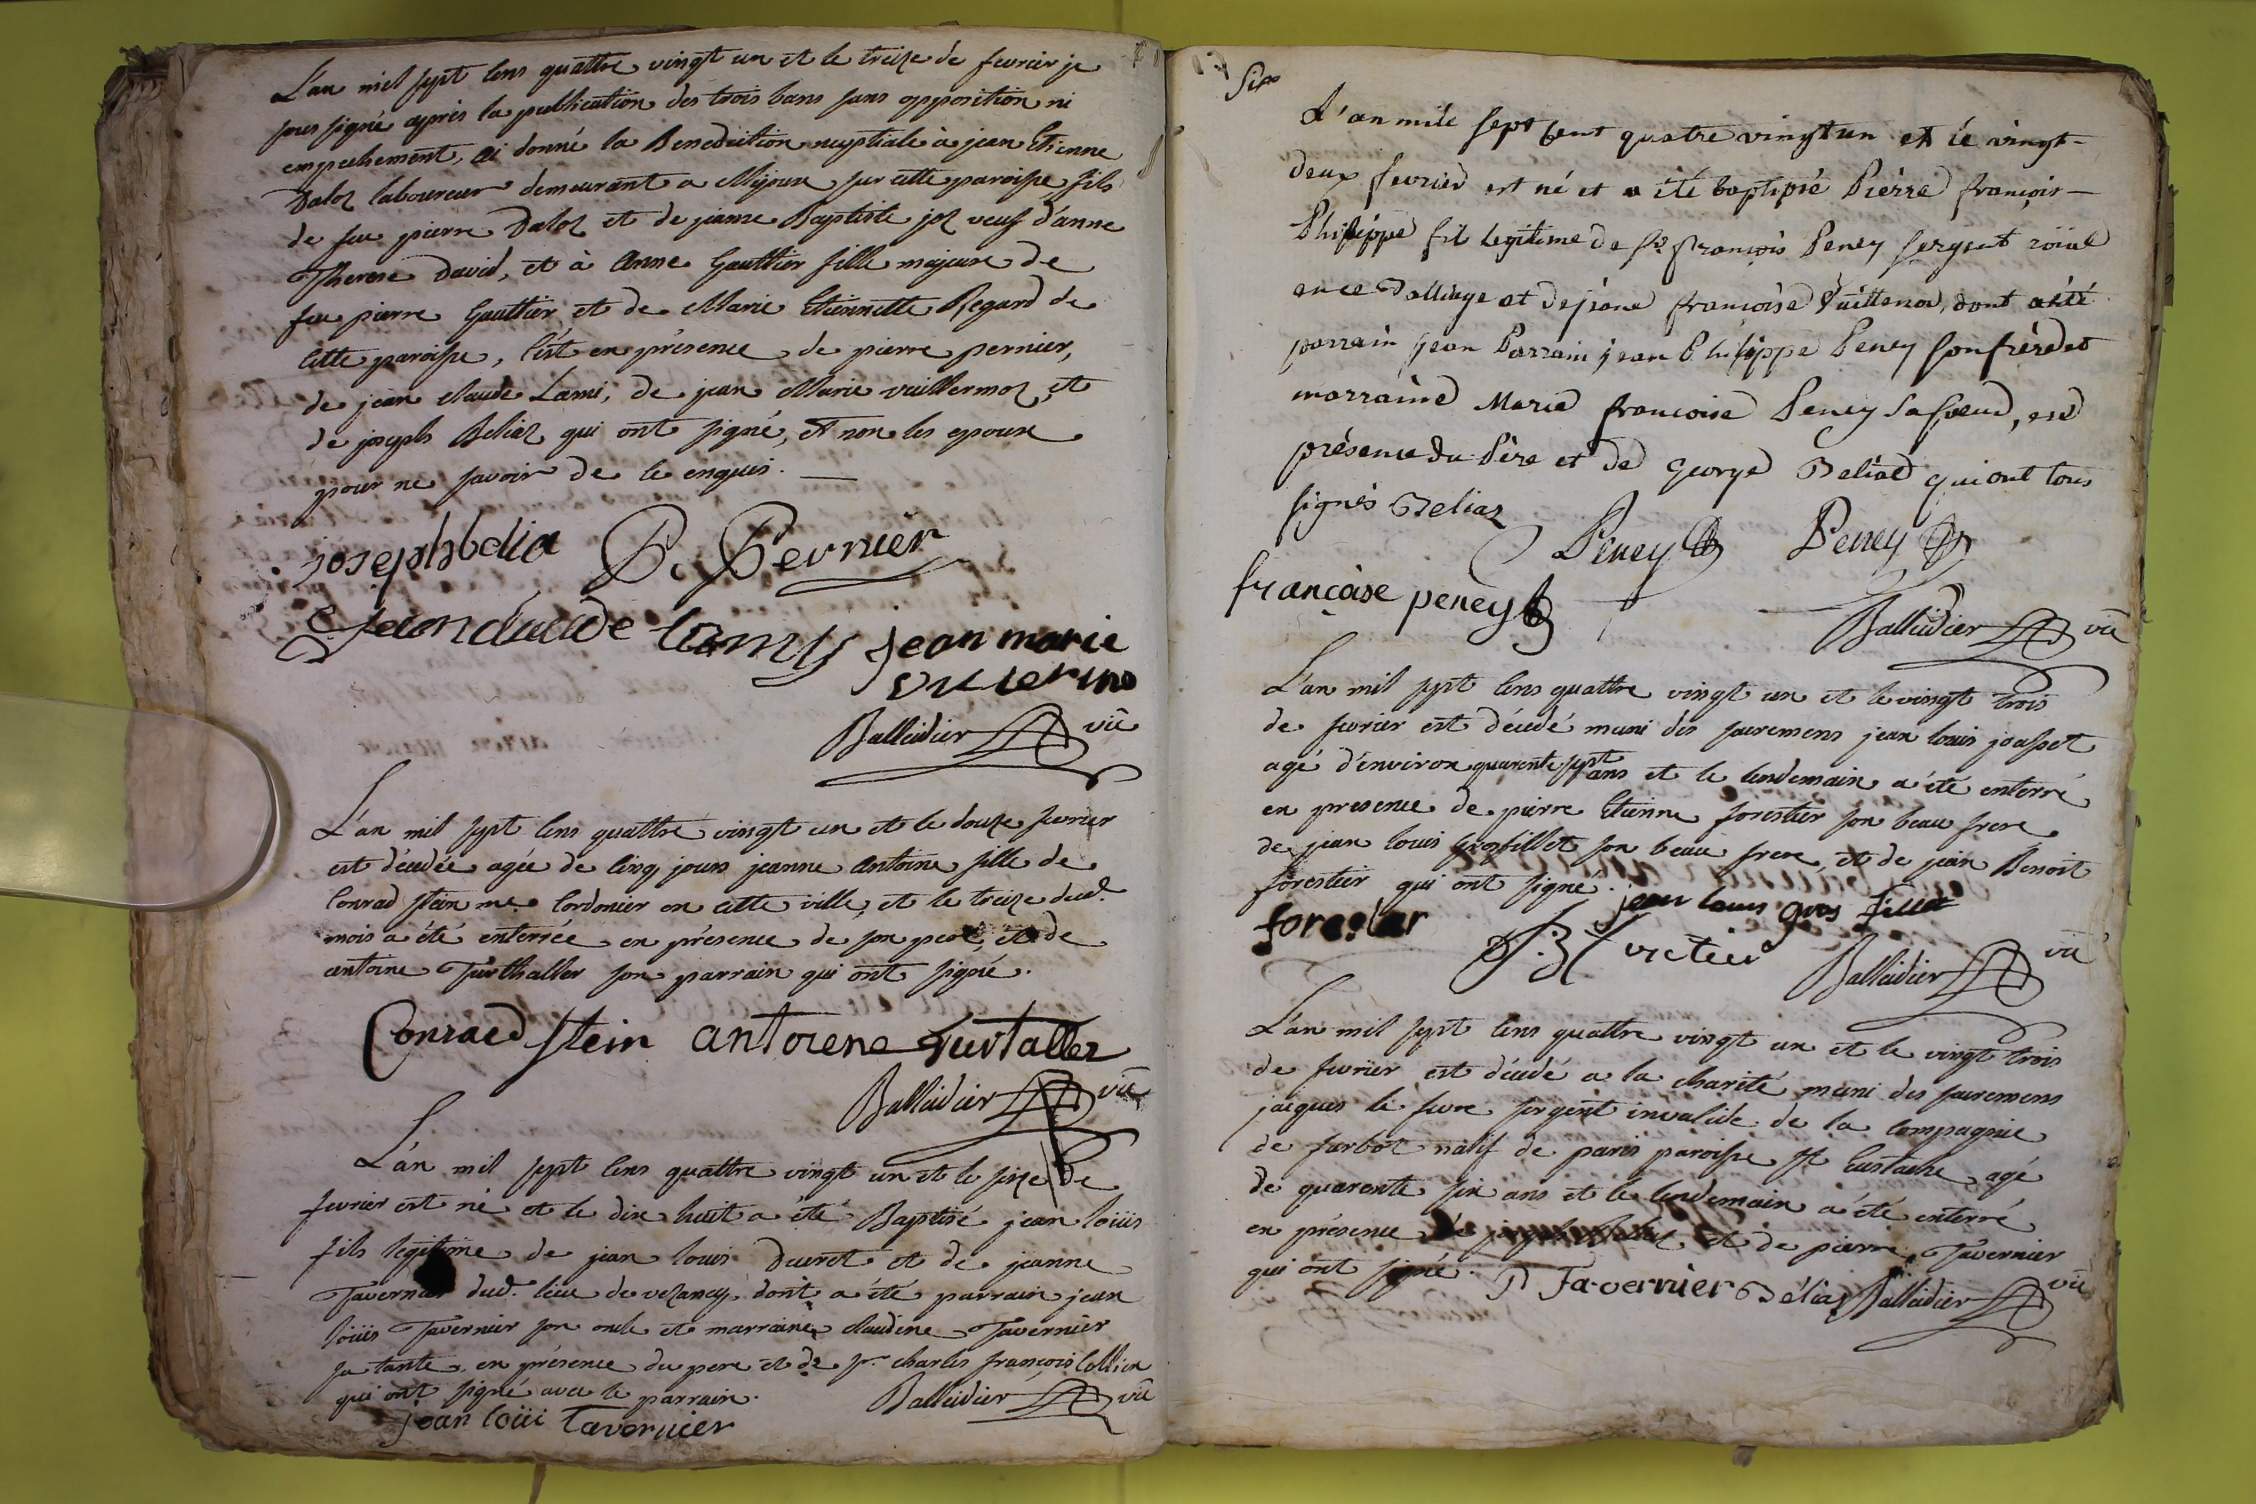 L'an mil sept cens quattre vingt un et le treize de fevrier je
sous signé après la publication des trois bans sans opposition ni
empechement, ai donné la Benediction nuptiale à jean Etienne
Daloz laboureur demeurant a Mijoux sur cette paroisse fils
de feu pierre Daloz et de jeanne Baptiste joz veuf d'anne
Therese David, et à Anne Gauttier fille majeure de
feu pierre Gauttier et de Marie Etiennette Regard de
cette paroisse, c'est en présence de pierre pernier,
de jean claude Lami, de jean Marie vuillermoz, et
de joseph Béliaz qui ont signé, et non les epoux
pour ne savoir de ce enquis.
josephbelia P. Pernier
jeanclaude lamy jean marie
vulermo
Balleidier vic
L'an mil sept cens quattre vingt un et le douze fevrier
est décedée agée de cinq jours jeanne Antoine fille de
Conrad Stein me Cordonier en cette ville, et le treize dud.
mois a été enterrée en présence de son pere, et de
antoine Turthaller son parrain qui ont signé.
Conraed Stein antoiene Turtaller
Balleidier vic
L'an mil sept cens quattre vingt un et le seize de
fevrier est né et le dix huit a été Baptisé jean loüis
fils legitime de jean louis Ducret et de jeanne
Tavernier dud. lieu de vezancy, dont a été parrain jean
loüis Tavernier son oncle et marraine claudine Tavernier
sa tante, en présence du pere et de sr. charles françois Collien
qui ont signé avec le parrain. Balleidier vic
jean loüi Tavernier
Six
L'an mile sept cent quatre vingt un et le vingt-
deux fevrier est né et a été baptisé Pièrre françois-
Philippe fils legitime de Sr. françois Peney sergent roïal
en ce Balliage et de jeane françoise Vuillenod, dont a été
parrain jean Parrain jean Philippe Peney son frère et
marraine Marie françoise Peney sa soeur, en
présence du Père et de George Béliaz qui ont tous
signés Beliaz
Peney Peney
françoise peney
Balleidier vic
L'an mil sept cens quattre vingt un et le vingt trois
de fevrier est décedé muni des sacremens jean louis joasset
agé d'environ quarente sept ans et le lendemain a été enterré
en presence de pierre Etienne forestier son beau frere
de jean louis Grosfillet son beau frere, et de jean Benoit
forestier qui ont signé. jean louis gros fillet
forestier
Balleidier vic
L'an mil sept cens quattre vingt un et le vingt trois
de fevrier est décedé a la charité muni des sacremens
jacques le fevre sergent invalide de la compagnie
de furbot natif de paris paroisse St Eustache, agé
de quarente six ans et le lendemain a été enterré
en présence de et de pierre Tavernier
qui ont signé. P Tavernier Béliaz Balleidier vic